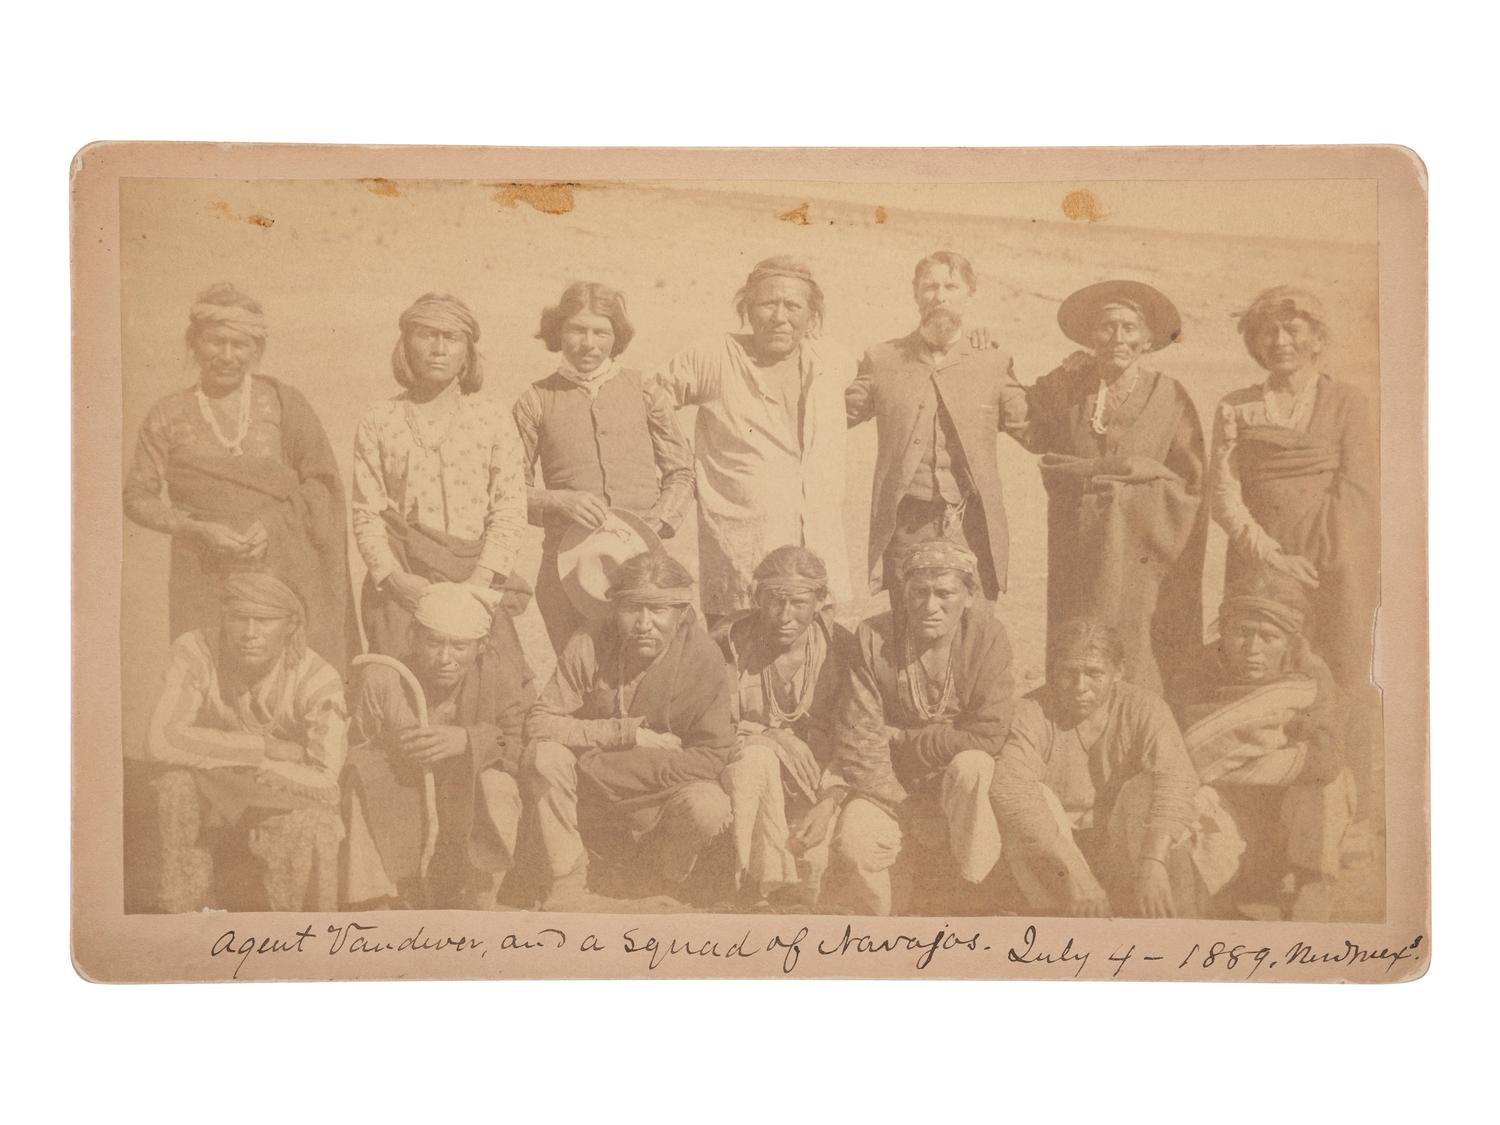 Agent Vandever, and a squad of Navajos. July 4 – 1889. New Mexº.